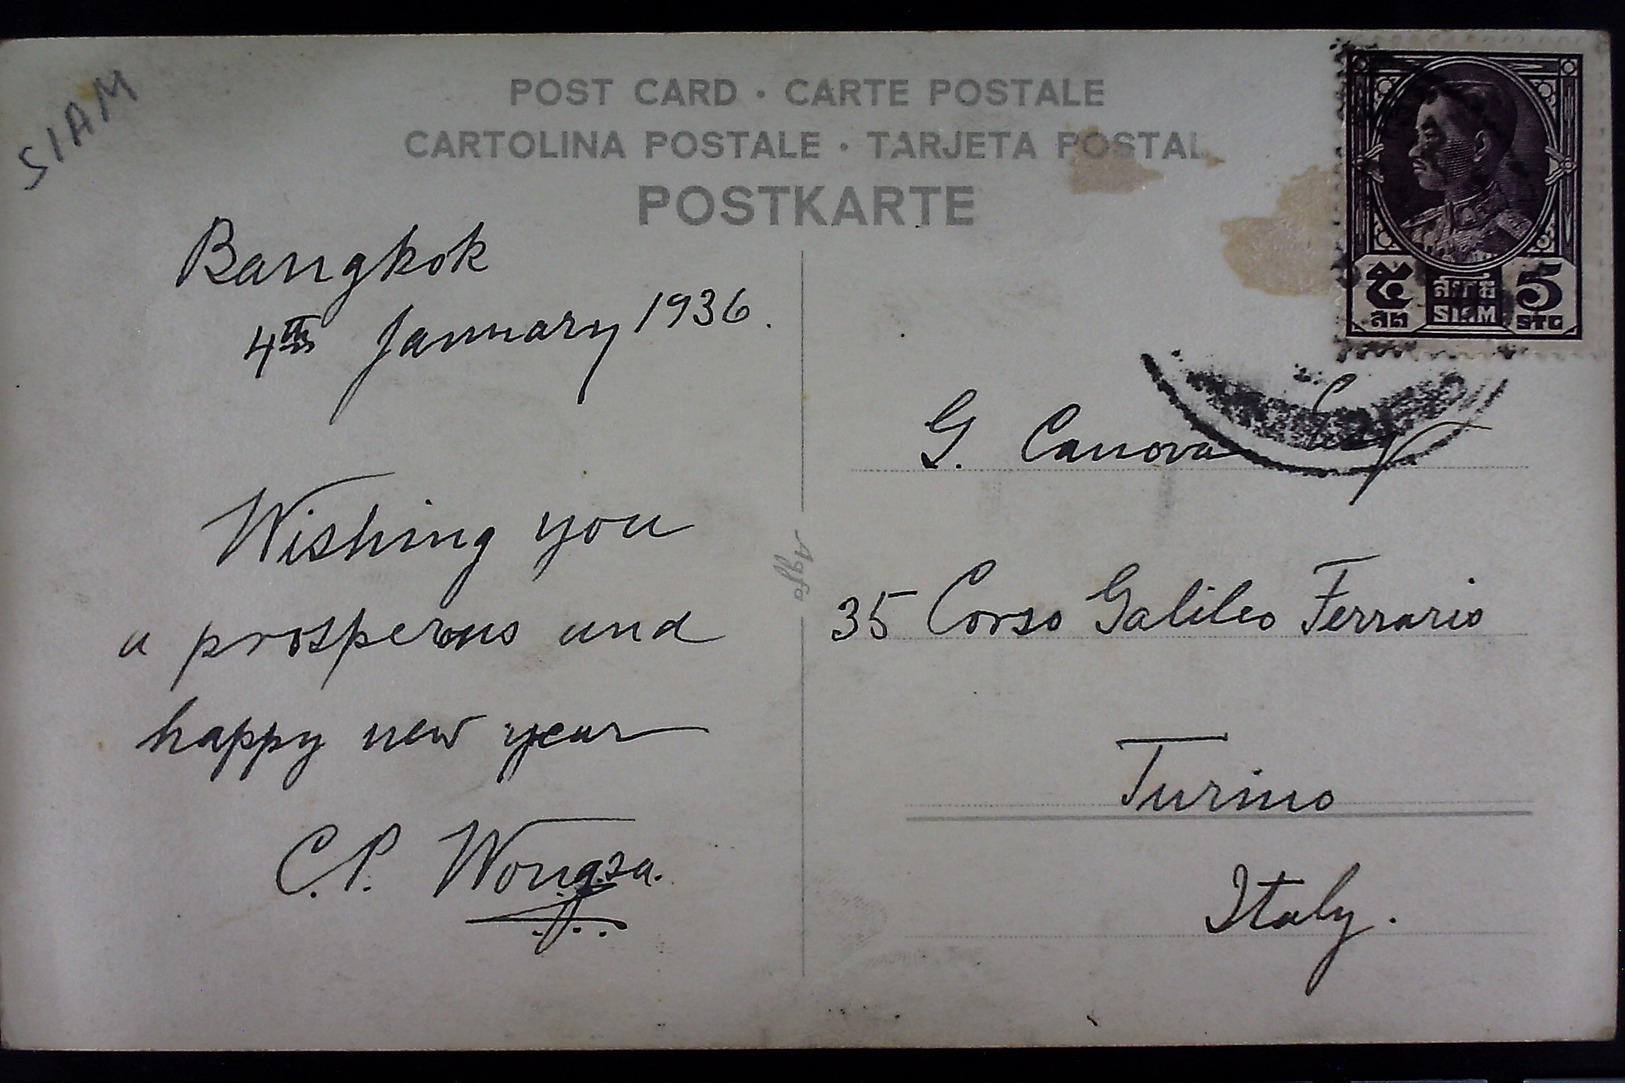 SIAM
POST CARD · CARTE POSTALE
CARTOLINA POSTALE · TARJETA POSTAL
POSTKARTE
Bangkok
4th January 1936.
Wishing you
a prosperous and
happy new year
C.P. Wongsa.
Agfa
๕ สต
สยามรัฐ
SIAM
5 STG
G. Canova
35 Corso Galileo Ferraris
Turino
Italy.